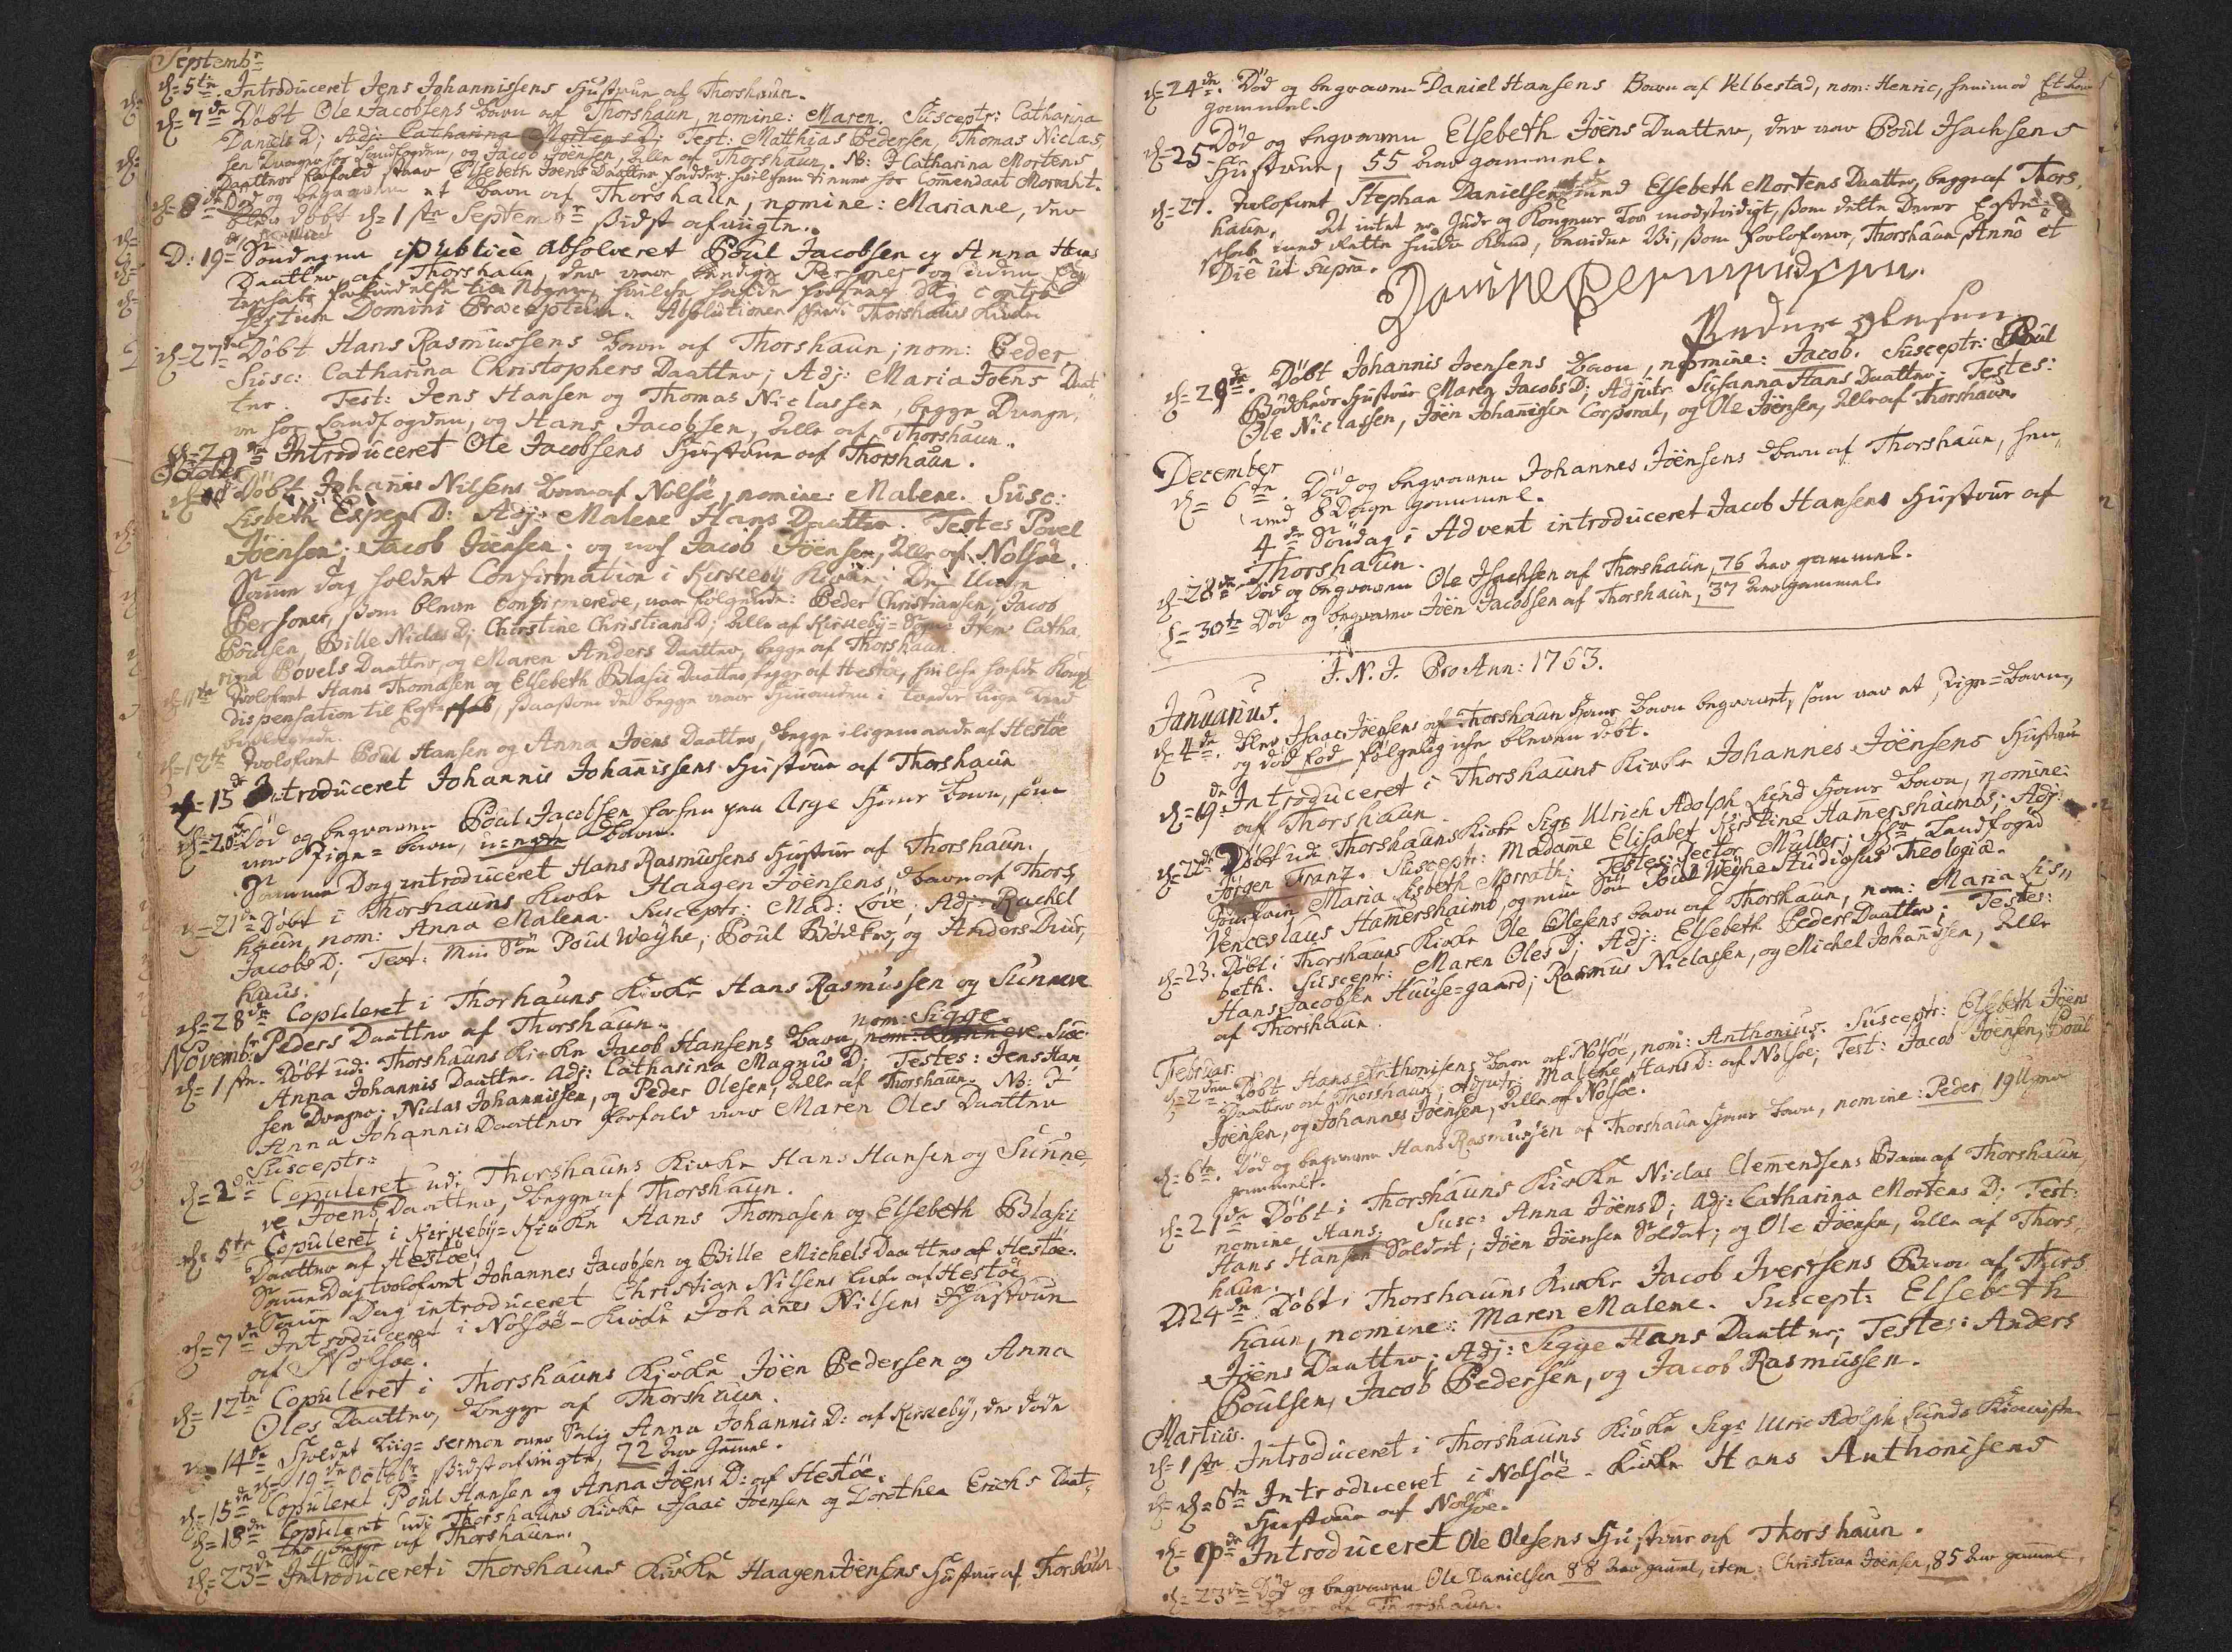 Septembr
d= 5te Introduceret Jens Johannissens Hustrue af Thorshaun.
d= 7de Döbt Ole Jacobsens Barn af Thorshaun, nomine: Maren. Susceptr: Catharina
Daniels D; Adj: Catharina Mortens D; Test: Matthias Pedersen, Thomas Niclas,
sen Drenge hos Landfogden, og Jacob Joensen, alle af Thorshaun. NB: I Catharina Mortens
Daatters forfald staar Elsebeth Joens Daatter fadder, hvilken tienner hos Commendant Morraht.
d= 8de Död og begraven et Barn af Thorshaun, nomine: Mariane, der
blev döbt d= 1ste Septembr sidst afvigte.
D: 19= Söndagen publicè absolveret Poul Jacobsen og Anna Hans
Daatter af Thorshaun, der vare ledige Personer og uden Eg
teskabs forbindelse til Nogen, hvilke havde forseet dem contra
sextum Domini Præceptum. Absolutionen skede i Thorshauns Kirke
d= 27de Döbt Hans Rasmussens Barn af Thorshaun; nom: Peder
Susc: Catharina Christophers Daatter; Adj: Maria Joens Daat
ter. Test: Jens Hansen og Thomas Niclassen, begge Drenge,
ne hos Landfogden, og Hans Jacobsen, alle af Thorshaun.
Introduceret Ole Jacobsens Hustrue af Thorshaun.
October
Döbt Johanis Nilsens Barn af Nolsöe, nomine: Malene. Susc:
Lisbeth Espens D: Adj: Malene Hans Daatter. Testes Povel
Jöensen; Jacob Joensen; og nok Jacob Jöensen, alle af Nolsöe.
Samme dag holdet Confirmation i Kirkeby Kirke; De unge
Personer, som bleve confirmerede, var fölgende: Peder Christiansen, Jacob
Poulsen, Bille Niclas D; Christine Christians D; alle af Kirkeby= Item Catha,
rina Povels Daatter, og Maren Anders Daatter, begge af Thorshaun.
d= 11te Trolofvet Hans Thomasen og Elsebeth Blasii Daatter, begge af Hestöe, hvilke hafde Kongl
dispensation til Egteskab, saasom de begge vare hinanden i tredie Lige Leed
d= 12te Trolofvet Poul Hansen og Anna Joens Daatter, begge iligemaade af Hestöe
d= 13de Introduceret Johannis Johanissens Hustrue af Thorshaun
d= 20de Död og begraven Poul Jacobsen paa Arge Hans Barn, som
var Pige= Barn, u=egte Barn.
Samme Dag introduceret Hans Rasmussens Hustrue af Thorshaun.
d= 21de Döbt i Thorshauns Kirke Haagen Jöensens Barn af Thors
haun, nom: Anna Malena. Susceptr: Mad: Löve; Adj: Rachel
Jacobs D; Test: Min Sön Poul Weyhe; Poul Bödker, og Anders Diur,
huus.
d= 28de Copuleret i Thorhauns Kirke Hans Rasmussen og Sunneve
Peders Daatter af Thorshaun.
Novembr.
nom: Sigge.
d= 1ste. Döbt udi Thorshauns Kirke Jacob Hansens Barn, nom: Sunneve. Susc:
Anna Johannis Daatter. Adj: Catharina Magnus D; Testes: Jens Han
sen Drenge; Niclas Johannissen, og Peder Olesen, alle af Thorshaun. NB: I
Anna Johannis Daatters forfald var Maren Oles Daatter
Susceptr:
d= 2den Copuleret udi Thorshauns Kirke Hans Hansen og Sunne,
ve Joens Daatter, begge af Thorshaun.
d= 5te Copuleret i Kirkeby= Kirke Hans Thomasen og Elsebeth Blasii
Daatter af Hestöe,
Samme Dag trolofvet Johannes Jacobsen og Bille Michels Daatter af Hestöe.
Samme Dag introduceret Christian Nilsens af Hestöe
d= 7de Introduceret i Nolsöe= Kirke Johanes Nilsens Hustrue
af Nolsöe.
d= 12te Copuleret i Thorshauns Kirke Jöen Pedersen og Anna
Oles Daatter, begge af Thorshaun.
d= 14de Holdet Liig= sermon over Salig Anna Johannis D: af Kirkeby, der döde
d= 19de Octobr sidst afvigte, 72 Aar Gamel.
d= 15de Copuleret Poul Hansen og Anna Jöens D: af Hestöe.
d= 18de Copuleret udi Thorshauns Kirke Isaac Joensen og Dorothea Erichs Daat,
ter, begge af Thorshaun.
d= 23de Introduceret i Thorshauns Kirke Haagen Jöensens Hustrue af Thorshaun
d= 24de. Död og begraven Daniel Hansens Barn af Velbestad, nom: Henric, henimod Et Aar
gammel.
d= 25 Död og begraven Elsebeth Jöens Daatter, der var Poul Isachsens
Hustrue, 55 Aar gammel.
d= 27. Trolofvet Stephan Danielsen med Elsebeth Mortens Daatter, begge af Thors,
haun, At intet er Guds og Kongens Lov modstridigt, som dette Deres Egte
skab med Rette hindre kand, bevidne Vi, som Forlofvere, Thorshaun Anno et
Die ut supra.
Peder Olesen.
d= 29de. Döbt Johannis Joensens Barn, nomine: Jacob. Susceptr: Poul
Bödkers Hustrue Maren Jacobs D; Adjutr: Susanna Hans Daatter; Testes:
Ole Niclassen, Jöen Johanissen Corporal, og Ole Jöensen, alle af Thorshaun.
December
d= 6te. Död og begraven Johannes Jöensens Barn af Thorshaun, hen
ved 8 Dage gammel.
4de Söndag i Advent introduceret Jacob Hansens Hustrue af
Thorshaun.
d= 28de Död og begraven Ole Isachsen af Thorshaun, 76 Aar gammel.
d= 30te Död og begraven Jöen Jacobsen af Thorshaun, 37 Aar gammel.
I. N. I. Pro Ann: 1763.
Januarius.
d= 4de. Blev Isaac Jöensens af Thorshaun Hans Barn begravet, som var et Pige= Barn,
og död föd, fölgelig icke bleven döbt.
d= 19de Introduceret i Thorshauns Kirke Johannes Jöensens Hustrue
af Thorshaun.
d= 22de Döbt udi Thorshauns Kirke Sigr Ulrich Adolph Lund Hans Barn, nomine:
Jörgen Franz. Susceptr: Madame Elisabet Kirstine Hamershaimbs; Adj:
Jomfrue Maria Lisbeth Morrath; Testes: Rector Müller; Hr Landfoged
Venceslaus Hamershaimb, og min Sön Poul Weyhe Studiosus Theologiæ.
d= 23. Döbt i Thorshauns Kirke Ole Olesens barn af Thorshaun, nom: Maria Lis,,
beth. Susceptr: Maren Oles D; Adj: Elsebeth Peders Daatter; Testes:
Hans Jacobsen Huuse=gaard; Rasmus Niclasen, og Michel Johannissen, alle
af Thorshaun.
Februar:
d= 2den. Döbt Hans Anthonisens Barn af Nolsöe, nom: Anthonius. Susceptr: Elsebeth Jöens
Daatter af Thorshaun; Adjutr: Malene Hans D: af Nolsöe; Test: Jacob Joensen, Poul
Jöensen, og Johannes Jöensen, alle af Nolsöe.
d= 6te. Död og begraven Hans Rasmussen af Thorshaun Hans Barn, nomine: Peder 19 Uger
gammelt.
d= 21de Döbt i Thorshauns Kirke Niclas Clemendsens Barn af Thorshaun,
nomine Hans; Susc: Anna Jöens D; Adj: Catharina Mortens D; Test:
Hans Hansen Soldat; Jöen Jöensen Soldat; og Ole Jöensen, alle af Thors,
haun.
D. 24de Döbt i Thorshauns Kirke Jacob Iversens Barn af Thors
haun, nomine: Maren Malene. Suscept: Elsebeth
Jöens Daatter; Adj: Sigge Hans Daatter; Testes: Anders
Poulsen, Jacob Pedersen, og Jacob Rasmussen.
Martius.
d= 1ste Introduceret i Thorshauns Kirke Sigr Ulric Adolph Lunds Kieriste
d= 6te Introduceret i Nolsöe= Kirke Hans Anthonisens
Hustrue af Nolsöe.
Introduceret Ole Olesens Hustrue af Thorshaun.
d= 23de Död og begraven Ole Danielsen 88 Aar gamel, item: Christian Joensen, 85 Aar gamel
begge af Thorshaun.